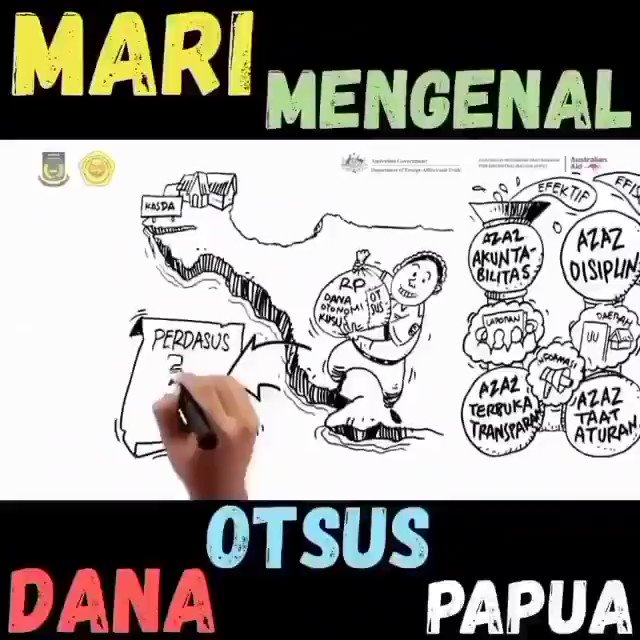 MARI
MENGENAL
Australian Government
Department of Foreign Affairs and Trade
Australian
Aid
KASDA
RP
DANA
OTONOMI
KHUSUS
OT
SUS
PERDASUS
EFEKTIF
AZAZ
AKUNTA-
BILITAS
AZAZ
DISIPLIN
LAPORAN
DAERAH
UU
AZAZ
TERBUKA
TRANSPARAN
AZAZ
TAAT
ATURAN
OTSUS
DANA
PAPUA